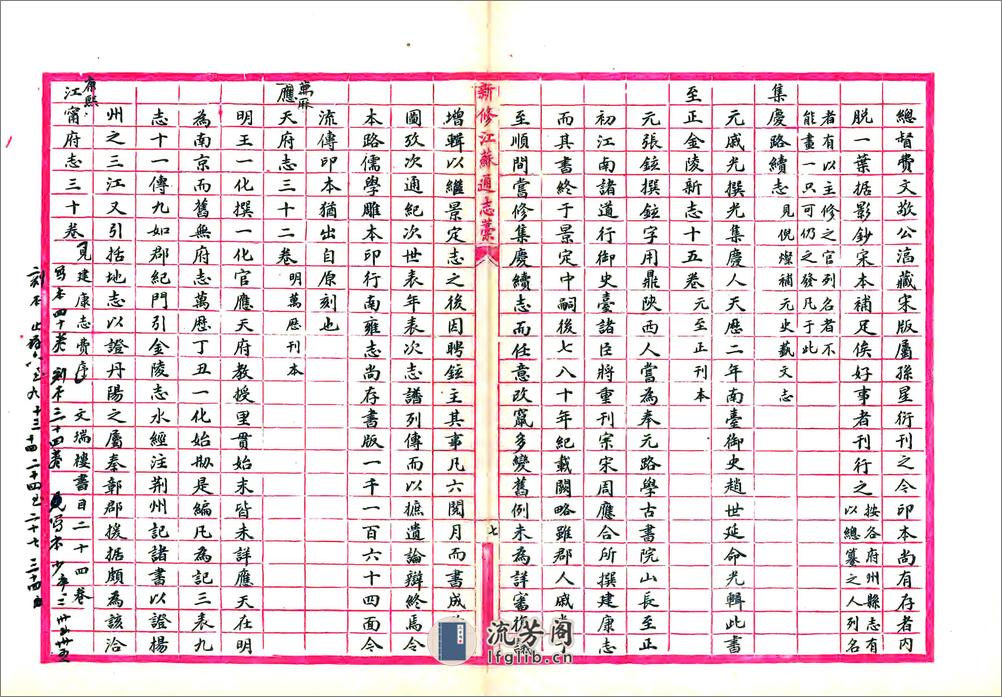 總督費文敬公滈藏宋版屬孫星衍刊之今印本尚有存者內
脱一葉据影鈔宋本補足俟好事者刊行之按各府州縣志有以總纂之人列名
者有以主修之官列名者不能畫一只可仍之發凡于此
集慶路續志見倪燦補元史藝文志
元戚光撰光集慶人天歷二年南臺御史趙世延命光輯此書
至正金陵新志十五卷元至正刊本
元張鉉撰鉉字用鼎陝西人嘗為奉元路學古書院山長至正
初江南諸道行御史臺諸臣將重刊宗宋周應合所撰建康志
而其書終于景定中嗣後七八十年紀載闕略雖郡人戚光于
至順間嘗修集慶續志而任意改竄多變舊例未為詳審
新修江蘇通志藁
七
增輯以繼景定志之後因聘鉉主其事凡六閱月而書成
圖攷次通紀次世表年表次志譜列傳而以摭遺論辯終焉今
本路儒學雕本印行南雍志尚存書版一千一百六十四面今
流傳印本猶出自原刻也
萬厤應天府志三十二卷明萬厯刊本
明王一化撰一化官應天府教授里貫始末皆未詳應天在明
為南京而舊無府志萬歷丁丑一化始刱是編凡為記三表九
志十一傳九如郡紀門引金陵志水經注荆州記諸書以證揚
州之三江又引括地志以證丹陽之屬秦鄣郡援据頗為該洽
康熙江甯府志三十卷見建康志費序 文瑞樓書目二十四卷
寫本四十卷 刻本三十四卷 見寫本少弟三
流芳阁
lfglib.cn